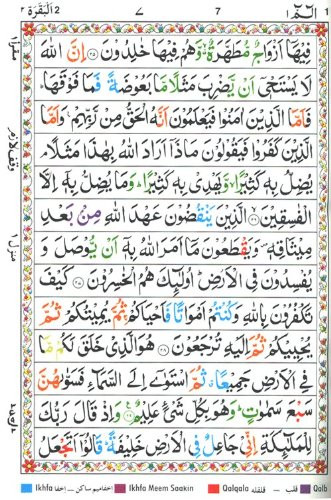 البقرة ٢ ٧ 7 الٓمّٓ ١
فِيْهَآ اَزْوَاجٌ مُّطَهَّرَةٌ وَّهُمْ فِيْهَا خٰلِدُوْنَ ﴿۲۵﴾ اِنَّ اللّٰهَ
لَا يَسْتَحْىٖٓ اَنْ يَّضْرِبَ مَثَلًا مَّا بَعُوْضَةً فَمَا فَوْقَهَا ؕ
فَاَمَّا الَّذِيْنَ اٰمَنُوْا فَيَعْلَمُوْنَ اَنَّهُ الْحَقُّ مِنْ رَّبِّهِمْ ۚ وَاَمَّا
الَّذِيْنَ كَفَرُوْا فَيَقُوْلُوْنَ مَاذَآ اَرَادَ اللّٰهُ بِهٰذَا مَثَلًا ۘ
يُضِلُّ بِهٖ كَثِيْرًا ۙ وَّيَهْدِىْ بِهٖ كَثِيْرًا ؕ وَمَا يُضِلُّ بِهٖٓ اِلَّا
الْفٰسِقِيْنَ ﴿۲۶﴾ الَّذِيْنَ يَنْقُضُوْنَ عَهْدَ اللّٰهِ مِنْۢ بَعْدِ
مِيْثَاقِهٖ ۪ وَيَقْطَعُوْنَ مَآ اَمَرَ اللّٰهُ بِهٖٓ اَنْ يُّوْصَلَ وَ
يُفْسِدُوْنَ فِى الْاَرْضِ ؕ اُولٰٓئِكَ هُمُ الْخٰسِرُوْنَ ﴿۲۷﴾ كَيْفَ
تَكْفُرُوْنَ بِاللّٰهِ وَكُنْتُمْ اَمْوَاتًا فَاَحْيَاكُمْ ۚ ثُمَّ يُمِيْتُكُمْ ثُمَّ
يُحْيِيْكُمْ ثُمَّ اِلَيْهِ تُرْجَعُوْنَ ﴿۲۸﴾ هُوَ الَّذِىْ خَلَقَ لَكُمْ مَّا
فِى الْاَرْضِ جَمِيْعًا ۗ ثُمَّ اسْتَوٰٓى اِلَى السَّمَآءِ فَسَوّٰىهُنَّ
سَبْعَ سَمٰوٰتٍ ؕ وَهُوَ بِكُلِّ شَىْءٍ عَلِيْمٌ ﴿۲۹﴾ وَاِذْ قَالَ رَبُّكَ
لِلْمَلٰٓئِكَةِ اِنِّىْ جَاعِلٌ فِى الْاَرْضِ خَلِيْفَةً ؕ قَالُوْٓا اَتَجْعَلُ
وقف لازم
منزل ١
Ikhfa إخفا Ikhfa Meem Saakin إخفا ميم ساكن Qalqala قلقله Qalb قلب